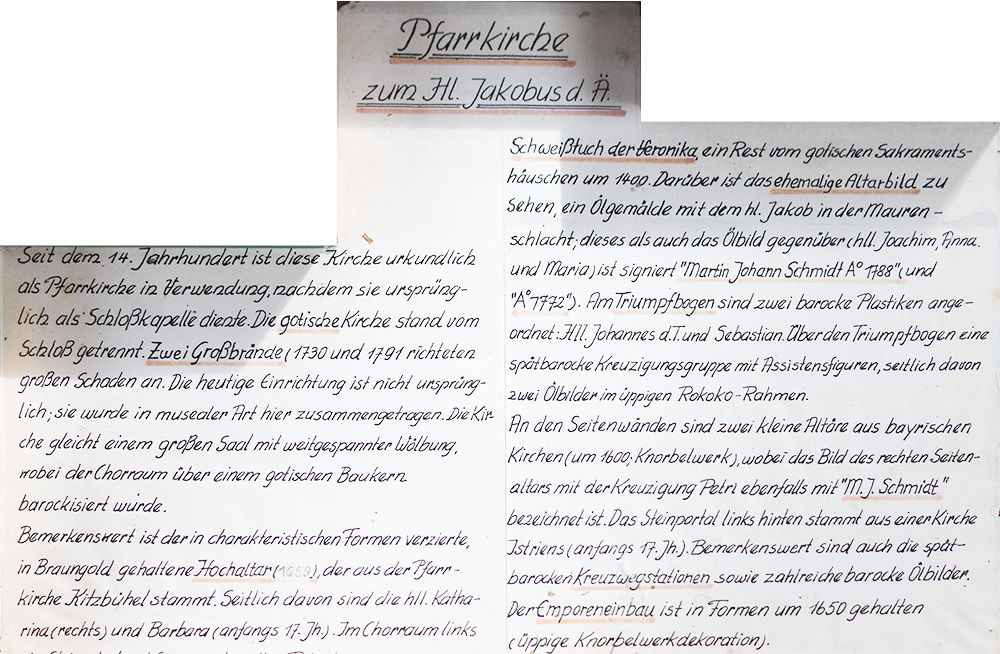 Pfarrkirche
zum Hl. Jakobus d. Ä.
Seit dem 14. Jahrhundert ist diese Kirche urkundlich
als Pfarrkirche in Verwendung, nachdem sie ursprüng-
lich als Schloßkapelle diente. Die gotische Kirche stand vom
Schloß getrennt. Zwei Großbrände (1730 und 1791 richteten
großen Schaden an. Die heutige Einrichtung ist nicht ursprüng-
lich; sie wurde in musealer Art hier zusammengetragen. Die Kir-
che gleicht einem großen Saal mit weitgespannter Wölbung,
wobei der Chorraum über einem gotischen Baukern
barockisiert wurde.
Bemerkenswert ist der in charakteristischen Formen verzierte,
in Braungold gehaltene Hochaltar (1659), der aus der Pfarr-
kirche Kitzbühel stammt. Seitlich davon sind die hll. Katha-
rina (rechts) und Barbara (anfangs 17. Jh.). Im Chorraum links
Schweißtuch der Veronika, ein Rest vom gotischen Sakraments-
häuschen um 1400. Darüber ist das ehemalige Altarbild zu
sehen, ein Ölgemälde mit dem hl. Jakob in der Mauren-
schlacht; dieses als auch das Ölbild gegenüber (hll. Joachim, Anna
und Maria) ist signiert "Martin Johann Schmidt A° 1788" (und
"A° 1772"). Am Triumpfbogen sind zwei barocke Plastiken ange-
ordnet: Hll. Johannes d.T. und Sebastian. Über den Triumpfbogen eine
spätbarocke Kreuzigungsgruppe mit Assistensfiguren, seitlich davon
zwei Ölbilder im üppigen Rokoko-Rahmen.
An den Seitenwänden sind zwei kleine Altäre aus bayrischen
Kirchen (um 1600; Knorbelwerk), wobei das Bild des rechten Seiten-
altars mit der Kreuzigung Petri ebenfalls mit "M. J. Schmidt"
bezeichnet ist. Das Steinportal links hinten stammt aus einer Kirche
Istriens (anfangs 17. Jh.). Bemerkenswert sind auch die spät-
barocken Kreuzwegstationen sowie zahlreiche barocke Ölbilder.
Der Emporeneinbau ist in Formen um 1650 gehalten
(üppige Knorpelwerkdekoration).